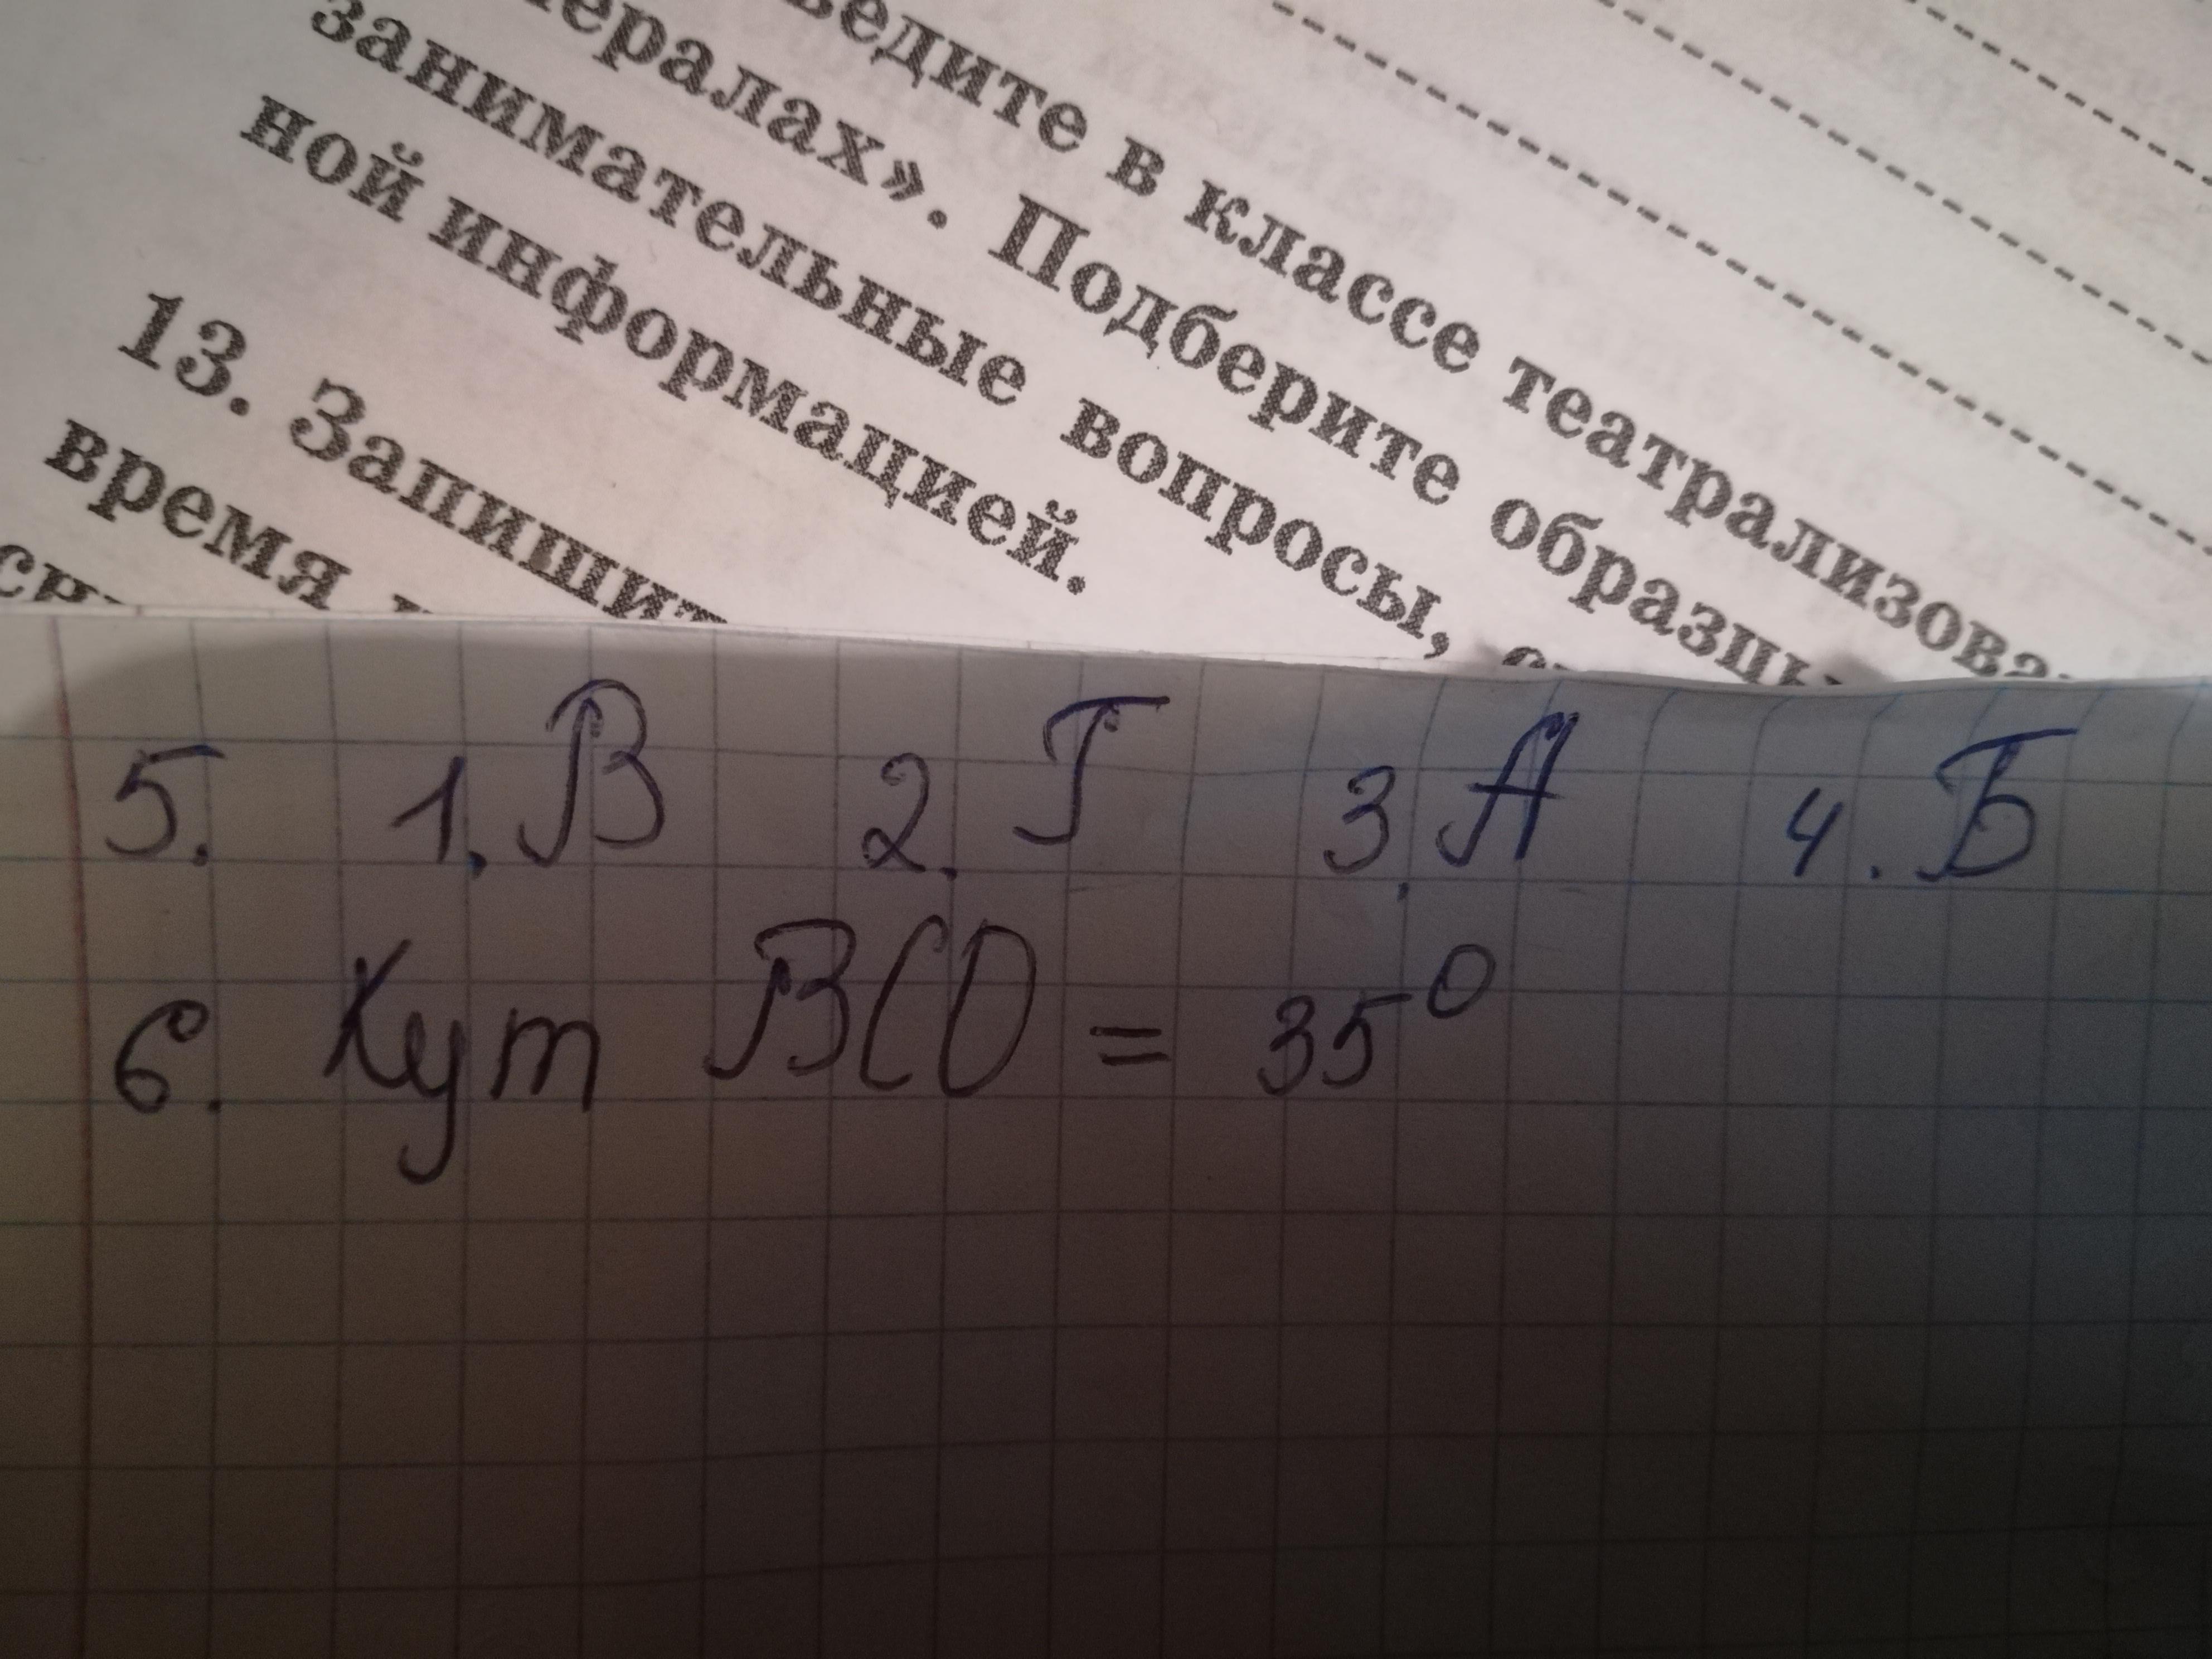 ведите в классе театрализова
нералах». Подберите образцы
занимательные вопросы,
ной информацией.
13. Запишит
время
5. 1. В 2. Г 3. А 4. Б
6. Кут ВСО = 35°